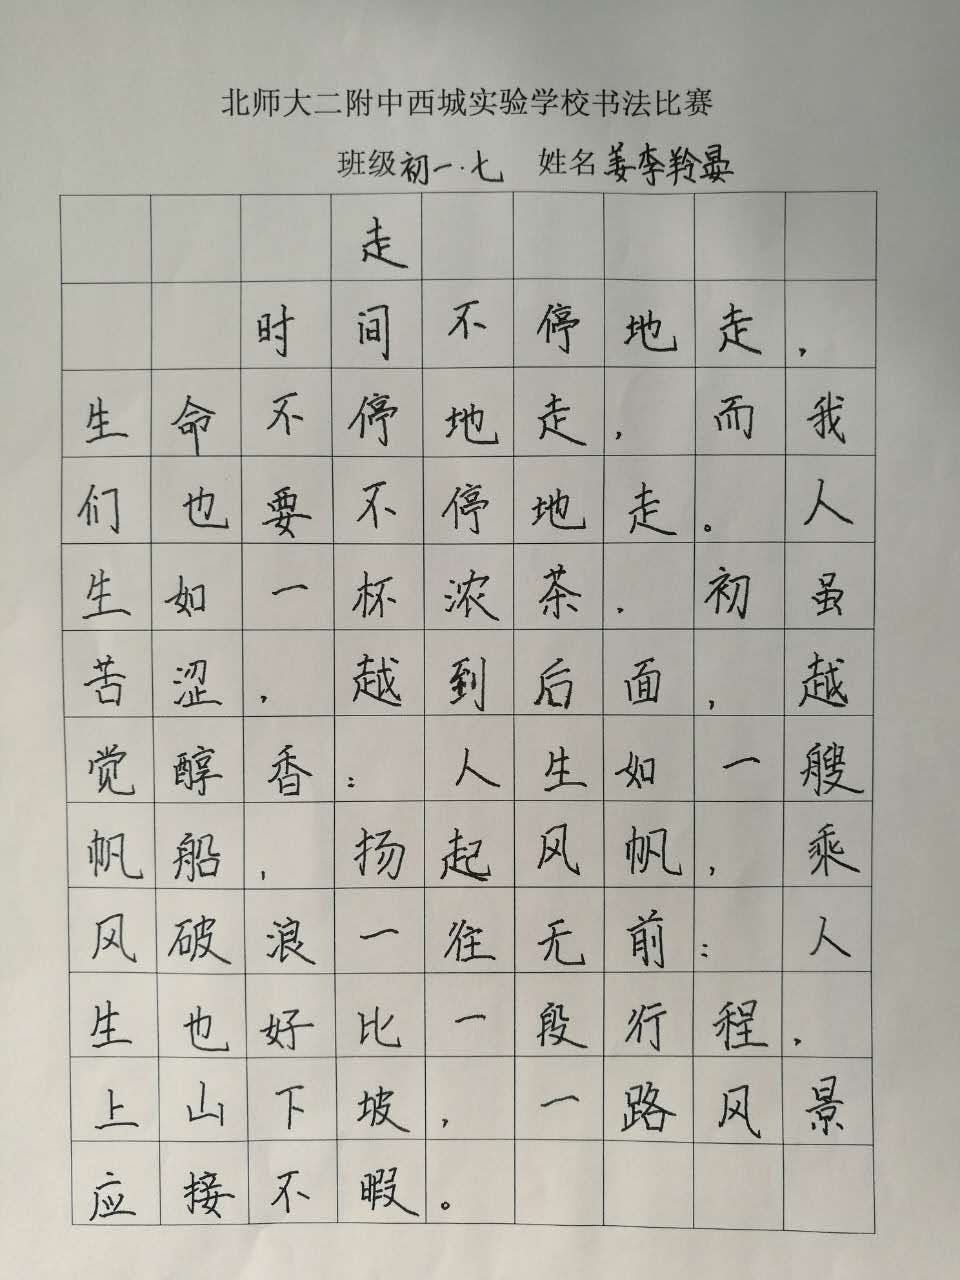 北师大二附中西城实验学校书法比赛
班级初一·七 姓名姜李羚晏
走
时间不停地走，
生命不停地走，而我
们也要不停地走。人
生如一杯浓茶，初虽
苦涩，越到后面，越
觉醇香；人生如一艘
帆船，扬起风帆，乘
风破浪一往无前；人
生也好比一段行程，
上山下坡，一路风景
应接不暇。